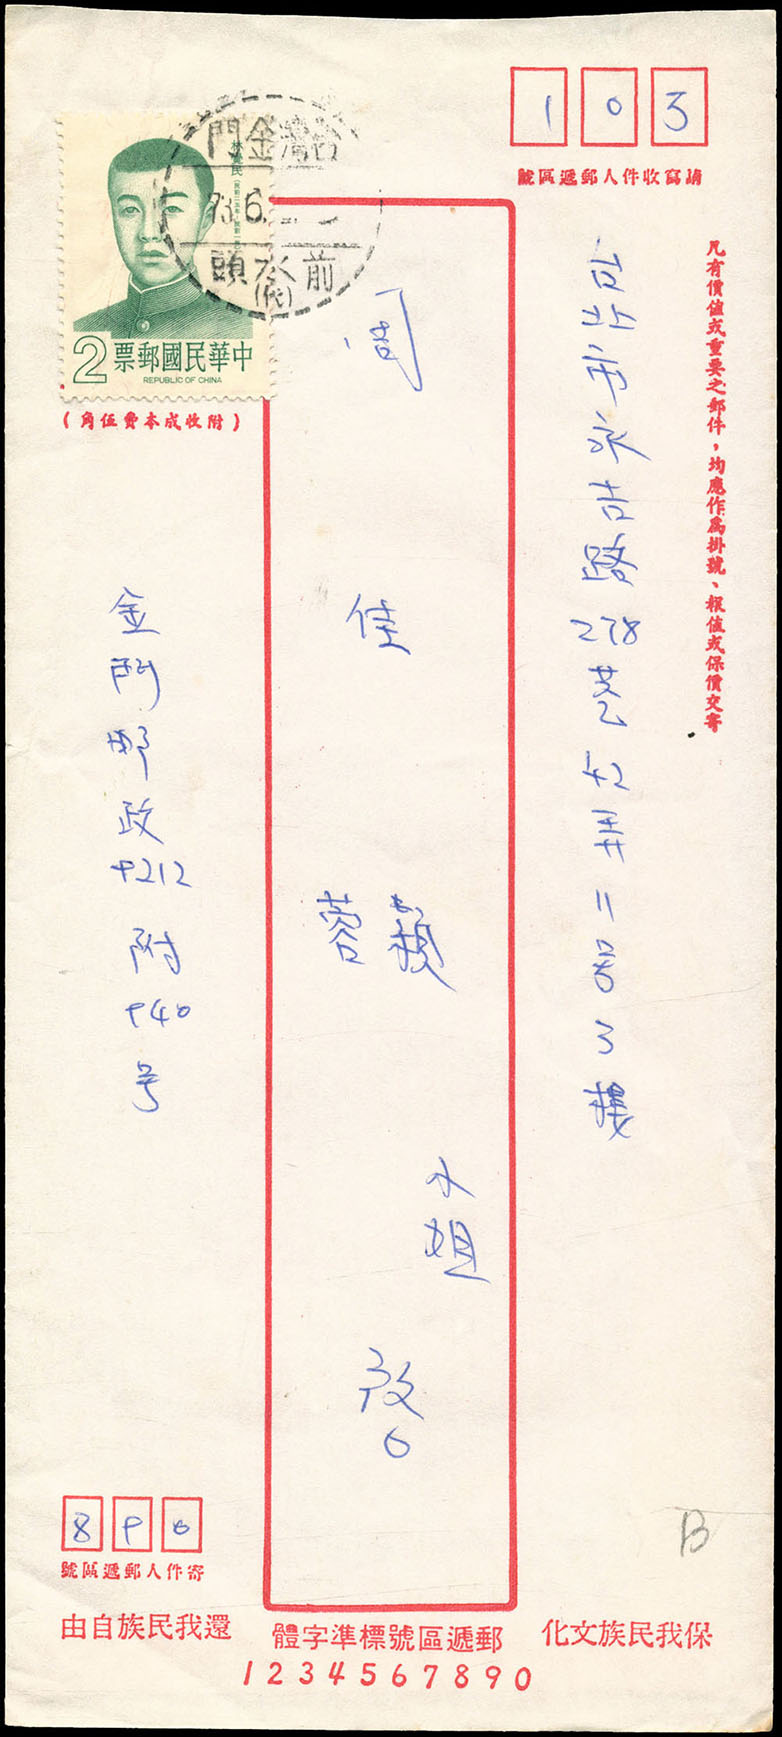 103
請寫收件人郵遞區號
凡有價值或重要之郵件，均應作為掛號、報值或保價交寄
台北市永吉路278巷42弄11号3樓
周佳蓉 小姐 啟
台灣金門
73.6.
前水頭
(代)
林覺民
2 中華民國郵票
REPUBLIC OF CHINA
(附收成本費伍角)
金門郵政9212附940号
890
寄件人郵遞區號
B
保我民族文化
郵遞區號標準字體
還我民族自由
1234567890